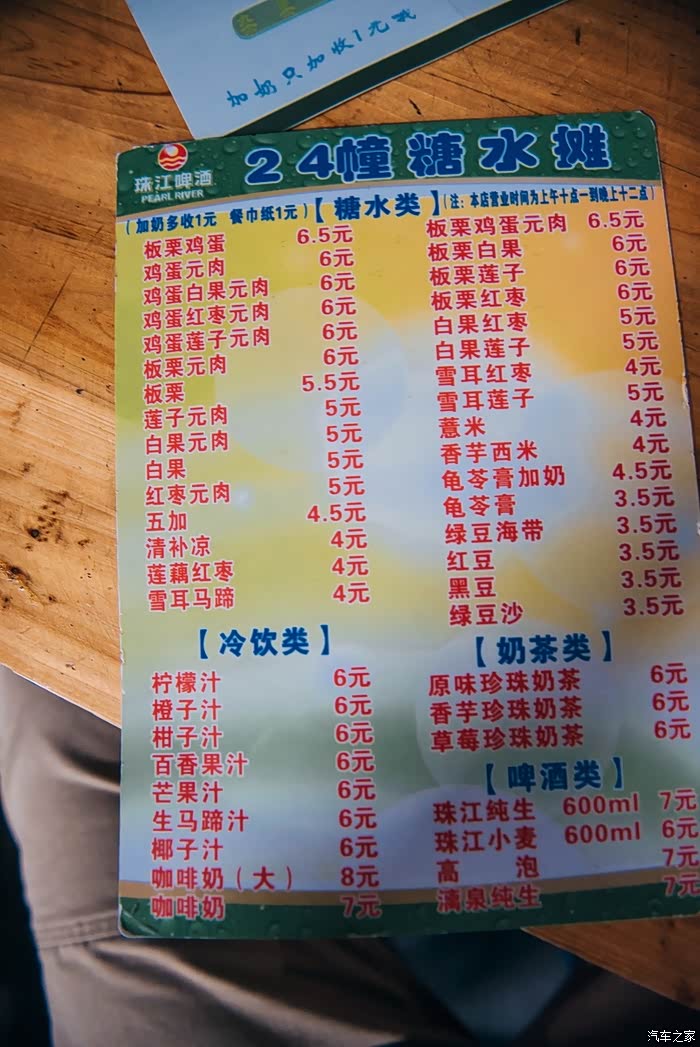 加奶只加收1元哦
珠江啤酒
PEARL RIVER
24幢糖水摊
(加奶多收1元 餐巾纸1元)【糖水类】(注：本店营业时间为上午十点一到晚上十二点)
板栗鸡蛋 6.5元
鸡蛋元肉 6元
鸡蛋白果元肉 6元
鸡蛋红枣元肉 6元
鸡蛋莲子元肉 6元
板栗元肉 6元
板栗 5.5元
莲子元肉 5元
白果元肉 5元
白果 5元
红枣元肉 5元
五加 4.5元
清补凉 4元
莲藕红枣 4元
雪耳马蹄 4元
板栗鸡蛋元肉 6.5元
板栗白果 6元
板栗莲子 6元
板栗红枣 6元
白果红枣 5元
白果莲子 5元
雪耳红枣 4元
雪耳莲子 5元
薏米 4元
香芋西米 4元
龟苓膏加奶 4.5元
龟苓膏 3.5元
绿豆海带 3.5元
红豆 3.5元
黑豆 3.5元
绿豆沙 3.5元
【冷饮类】
柠檬汁 6元
橙子汁 6元
柑子汁 6元
百香果汁 6元
芒果汁 6元
生马蹄汁 6元
椰子汁 6元
咖啡奶(大) 8元
咖啡奶 7元
【奶茶类】
原味珍珠奶茶 6元
香芋珍珠奶茶 6元
草莓珍珠奶茶 6元
【啤酒类】
珠江纯生 600ml 7元
珠江小麦 600ml 6元
高 泡 7元
漓泉纯生 7元
汽车之家